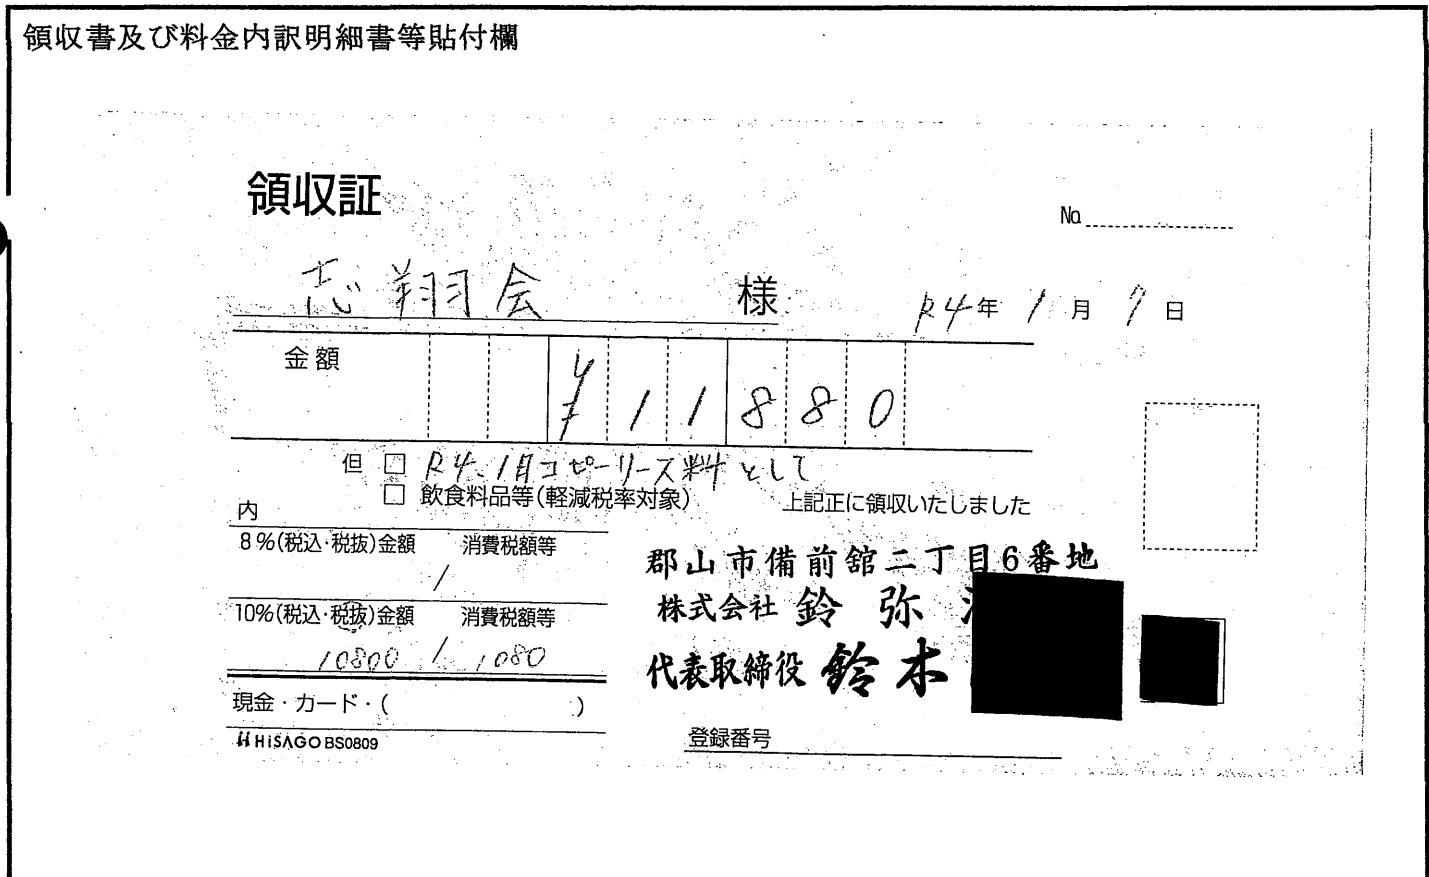 領収書及び料金内訳明細書等貼付欄
領収証
No.
志翔会 様 R4年 1月 7日
金額 ¥11880
但 □ R4.1月コピーリース料として
□ 飲食料品等(軽減税率対象) 上記正に領収いたしました
内
8%(税込・税抜)金額 消費税額等
/
10%(税込・税抜)金額 消費税額等
10800 / 1080
現金・カード・( )
HiSAGO BS0809
郡山市備前舘二丁目6番地
株式会社 鈴弥
代表取締役 鈴木
登録番号